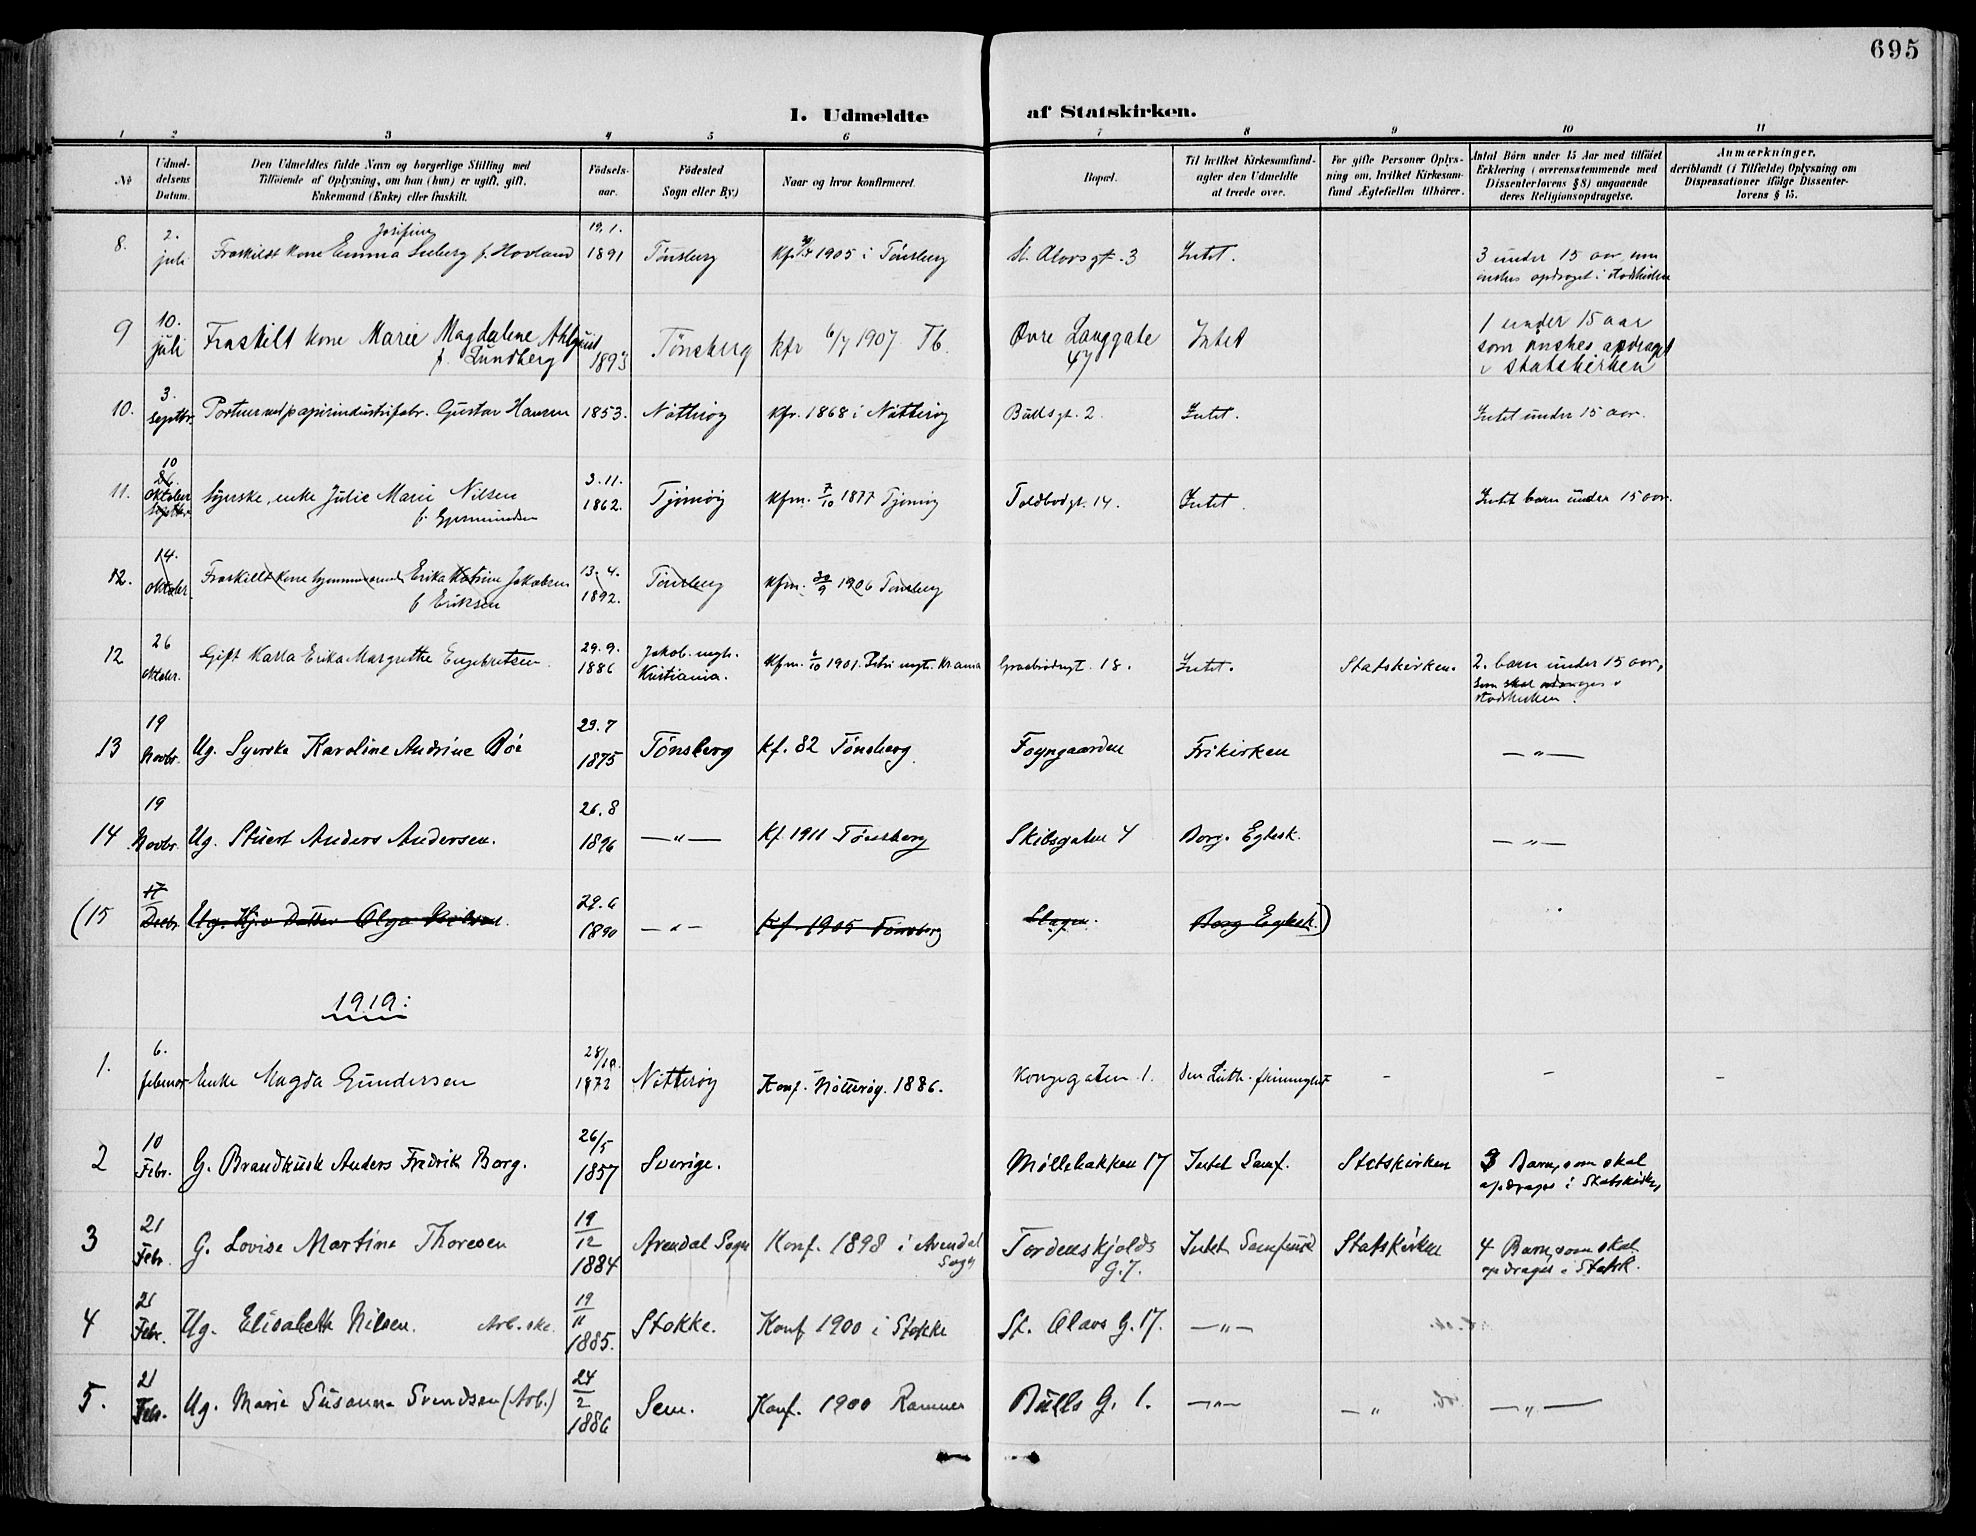 695
I. Udmeldte af Statskirken.
1 2 3 4 5 6 7 8 9 10 11
No
Udmeldelsens Datum.
Den Udmeldtes fulde Navn og borgerlige Stilling med
Tilføiende af Oplysning, om han (hun) er ugift, gift,
Enkemand (Enke) eller fraskilt.
Fødselsaar.
Fødested
Sogn eller By.)
Naar og hvor konfirmeret.
Bopæl.
Til hvilket Kirkesamfund
agter den Udmeldte
at træde over.
For gifte Personer Oplysning
om, hvilket Kirkesamfund
Ægtefællen tilhører.
Antal Børn under 15 Aar med tilføiet
Erklæring (overensstemmende med
Dissenterlovens § 8) angaaende
deres Religionsopdragelse.
Anmærkninger,
deriblandt (i Tilfælde) Oplysning om
Dispensationer ifølge Dissenterlovens § 15.
8. 2. juli Fraskildt kone Emma Josefine f. Hovland 19.1. 1891 Tønsberg Kf. 1905 i Tønsberg St. Olavsgt. 3 Intet. 3 under 15 aar, som
ønskes opdraget i statskirken
9 10. juli Fraskilt kone Marie Magdalene Ahlquist
f. Lundberg 1893 Tönsberg kfr 6/7 1907 Tb. Øvre Langgate
47 Intet 1 under 15 aar
som ønskes opdraget
i statskirken
10. 3. Septbr. Portner ved papirindustrifabr. Gustav Hansen 1853. Nøtterøy Kfr. 1868 i Nøtterøy Bullsgt. 2. Intet. Intet under 15 aar.
11. 10 oktober Syerske, enke Julie Marie Nilsen
f. Gjermundsen 3.11. 1862. Tjømøy Kfm. 7/10 1877 Tjømøy Toldbodgt. 14. Intet. Intet barn under 15 aar.
12. 14. oktober. Fraskillt kone hjemmeværende Erika Katrine Jakobsen
f Eriksen 13.4. 1892. Tønsberg kfm. 30/9 1906 Tønsberg
12 26 oktober. Gift Karla Erika Margrethe Engebretsen 29.9. 1886 Jakob mgh. Kristiania. Kfm. 1901. Petri mgt. Krania 18. Intet. Statskirken. 2. barn under 15 aar,
som skal opdrages i
statskirken.
13 19 Novbr. Ug. Syerske Karoline Andrine Bøe 29.7 1875 Tønsberg Kf. 82 Tønsberg. Foyngaarden Frikirken — " —
14 19 Novbr. Ug. Stuert Anders Andersen. 26.8 1896 — " — Kf. 1911 Tønsberg Skibsgaten 4 Borg. Egtesk. — " —
(15 17 Decbr. Ug. Hjv. Datter Olga 29.6 1890 — " — Kf. 1905 Tønsberg Slagen. Borg Egtesk.)
1919:
1. 6. februar Enke Magda Gundersen 28/10. 1872 Nøtterøy Konf. Nøtterøy. 1886. Kongegaten 1. Den Luth. frimenighet - - -
2 10 Febr. G. Brandkusk Anders Fredrik Borg. 26/5 1857 Sverige. Møllebakken 17 Intet Samf. Statskirken 3 Barn, som skal
opdrages i Statskirken
3 21 Febr. G. Lovise Martine Thoresen 19/12 1884 Arendal Sogn Konf. 1898 i Arendal
Sogn Tordenskjolds
G. 7. Intet Samfund Statskirken 4 Barn, som skal
opdrages i Statsk.
4 21 Febr. Ug. Elisabeth Nilsen. Arb.ske. 19/11 1885. Stokke. Konf 1900 i Stokke St. Olavs G. 17. — " —
5. 21 Febr. Ug. Marie Susanna Svendsen (Arb.) 24/2 1886 Sem. Konf. 1900 Ramnes Bulls G. 1. — " — — " — — " —